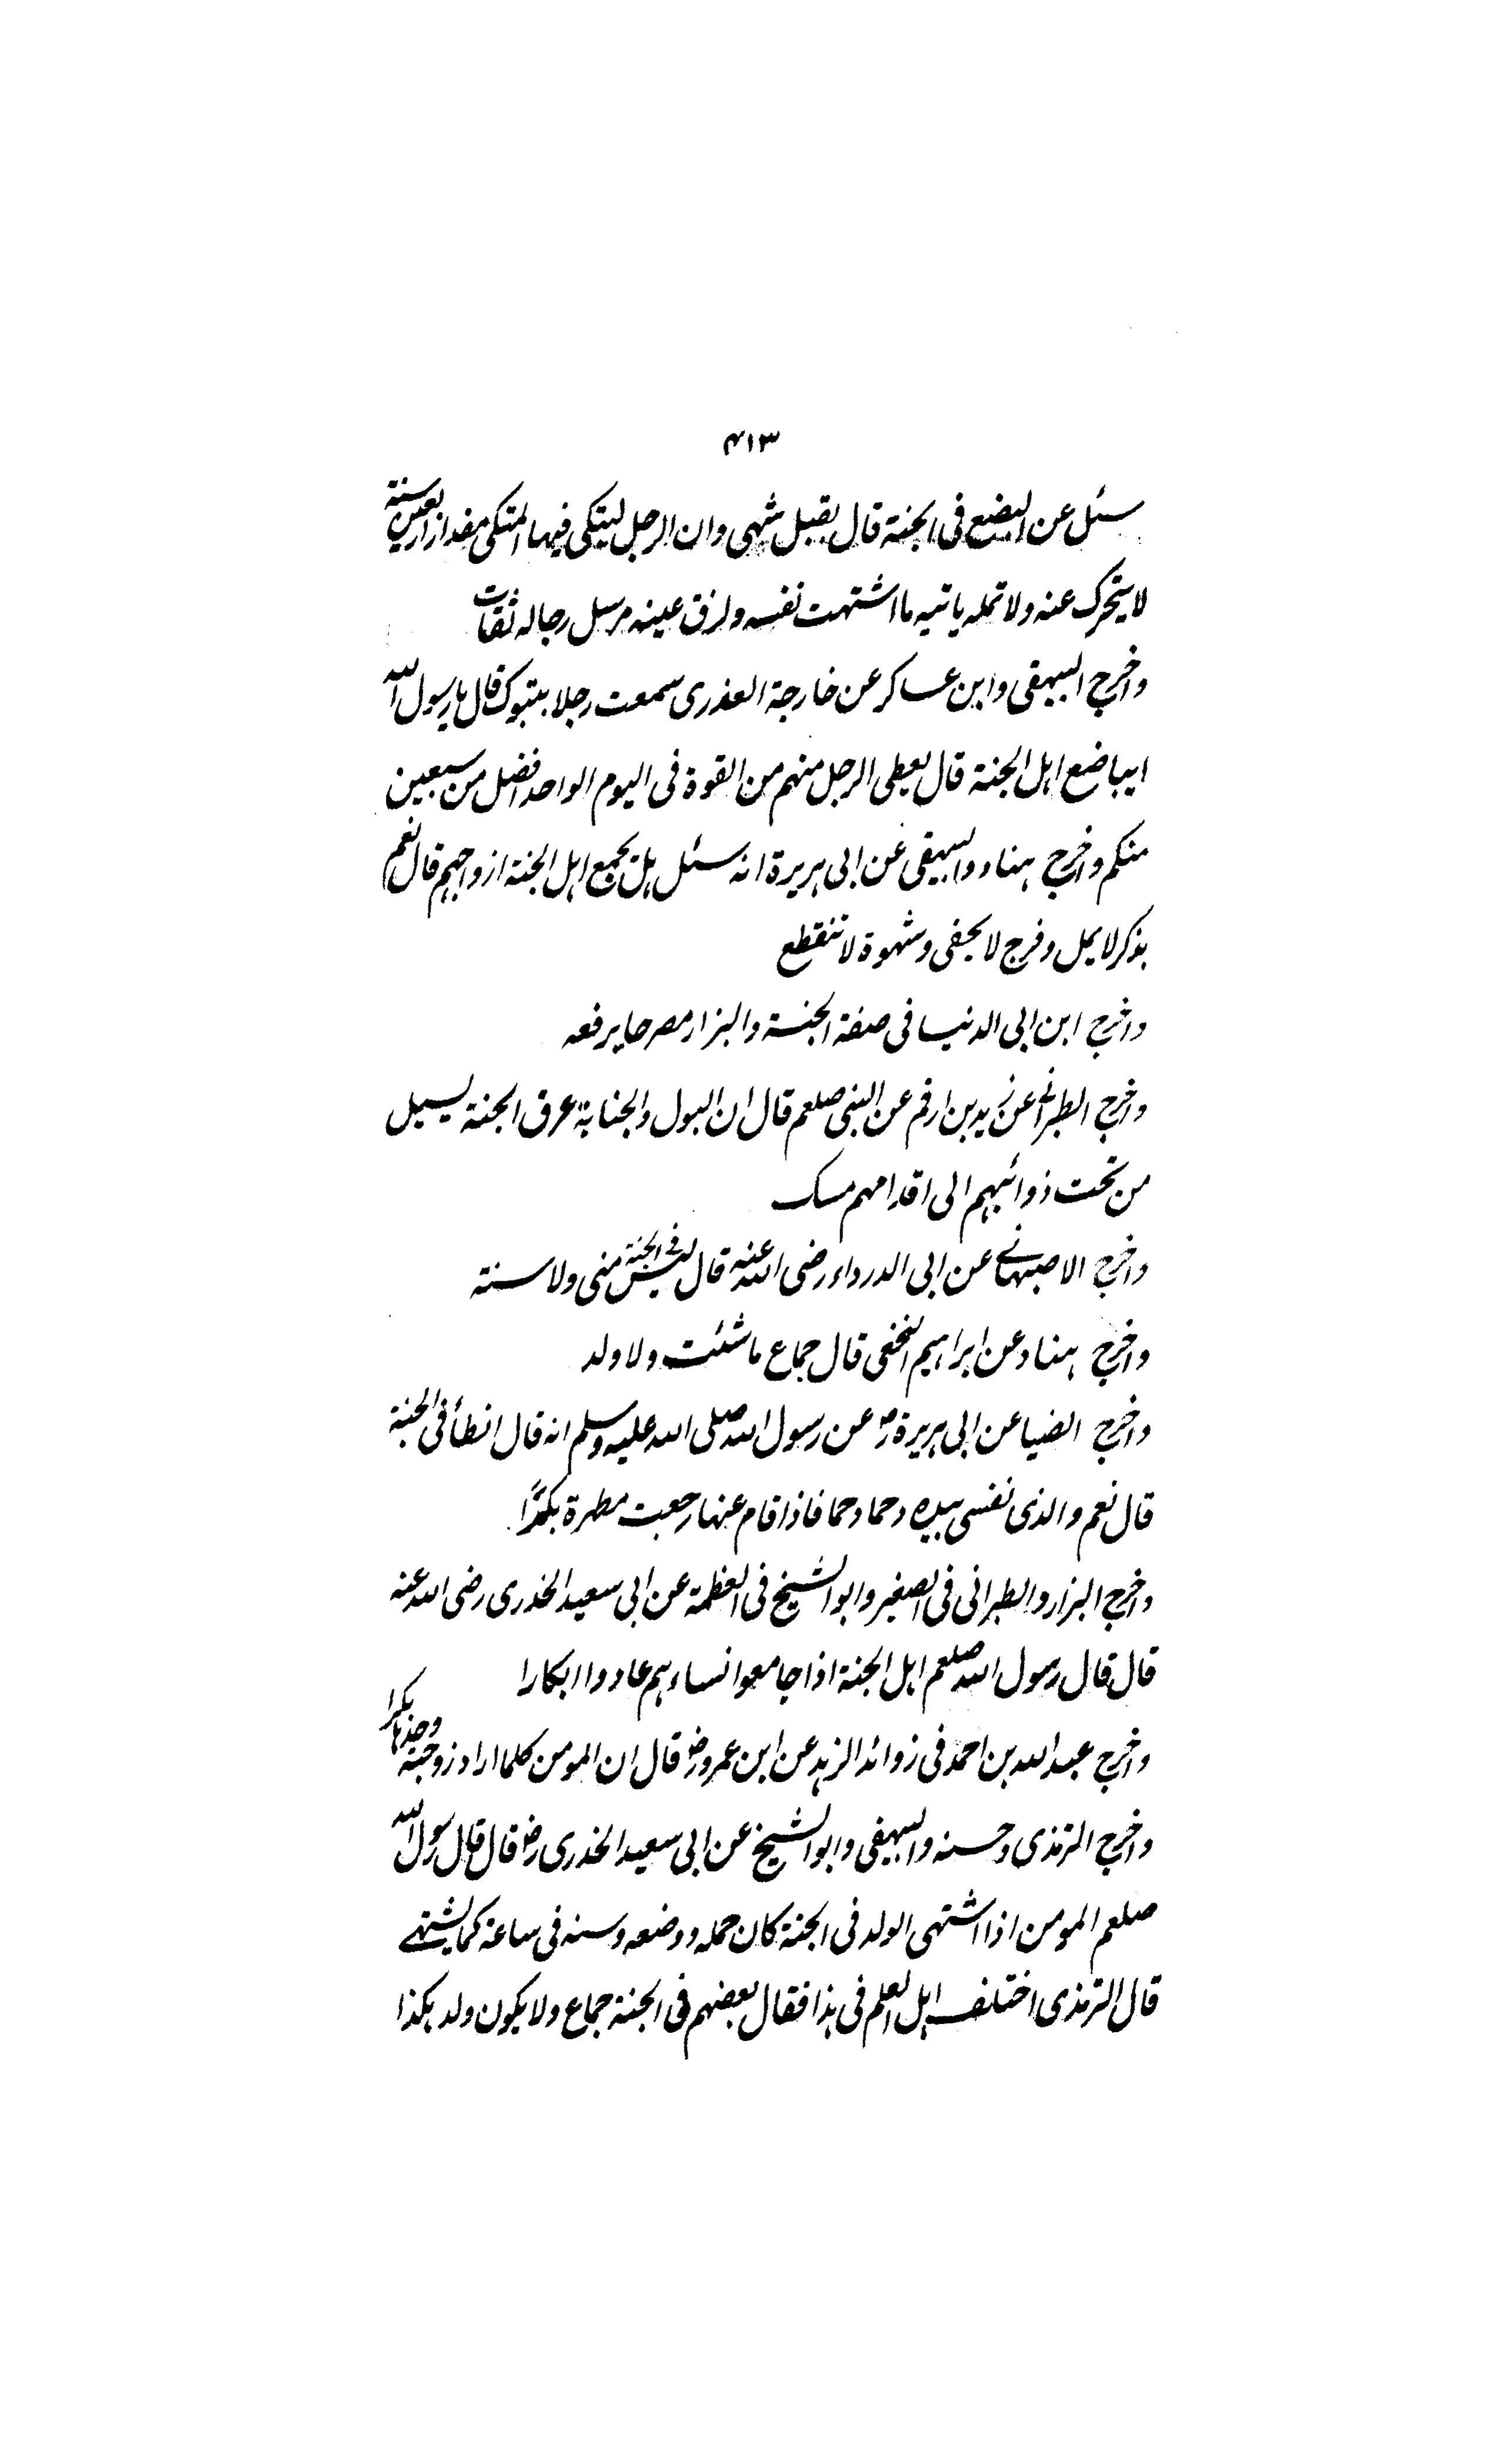 ۴۱۳
سئل عن البضع فی الجنة قال بقبل شہی وان الرجل لیتکی فیہا المتکی مقدار اربعین سنة
لا یتحرک عنہ ولا تملہ یاتیہ ما اشتہت نفسہ ولذق عینہ مرسل رجالہ ثقات
واخرج البیہقی وابن عساکر عن خارجة العذری سمعت رجلا بتبوک قال یا رسول اللہ
ایباضع اہل الجنة قال یعطی الرجل منہم من القوة فی الیوم الواحد افضل من سبعین
منکم واخرج ہناد والبیہقی عن ابی ہریرة انہ سئل ہل یجمع اہل الجنة ازواجہم قال نعم
بذکر لا یمل وفرج لا یحفی وشہوة لا تنقطع
واخرج ابن ابی الدنیا فی صفة الجنة والبزار مصرحا برفعہ
واخرج الطبرانی عن زید بن ارقم عن النبی صلعم قال ان البول والجنابة عرق الجنة یسیل
من تحت ذوائبہم الی اقدامہم مسک
واخرج الاصبہانی عن ابی الدرداء رضی اللہ عنہ قال لیس فی الجنة منی ولا منیة
واخرج ہناد عن ابراہیم النخعی قال جماع ما شئت ولا ولد
واخرج الضیا عن ابی ہریرة رض عن رسول اللہ صلی اللہ علیہ وسلم انہ قال انطأ فی الجنة
قال نعم والذی نفسی بیدہ دحما دحما فاذا قام عنہا رجعت مطہرة بکرًا
واخرج البزار والطبرانی فی الصغیر وابو الشیخ فی العظمة عن ابی سعید الخدری رضی اللہ عنہ
قال قال رسول اللہ صلعم اہل الجنة اذا جامعوا نساءہم عادوا ابکارا
واخرج عبد اللہ بن احمد فی زوائد الزہد عن ابن عمرو رض قال ان المومن کلما اراد زوجتہ وجدہا بکرا
واخرج الترمذی وحسنہ والبیہقی وابو الشیخ عن ابی سعید الخدری رض قال قال رسول اللہ
صلعم المومن اذا اشتہی الولد فی الجنة کان حملہ ووضعہ وسنہ فی ساعة کما یشتہی
قال الترمذی اختلف اہل العلم فی ہذا فقال بعضہم فی الجنة جماع ولا یکون ولد ہکذا